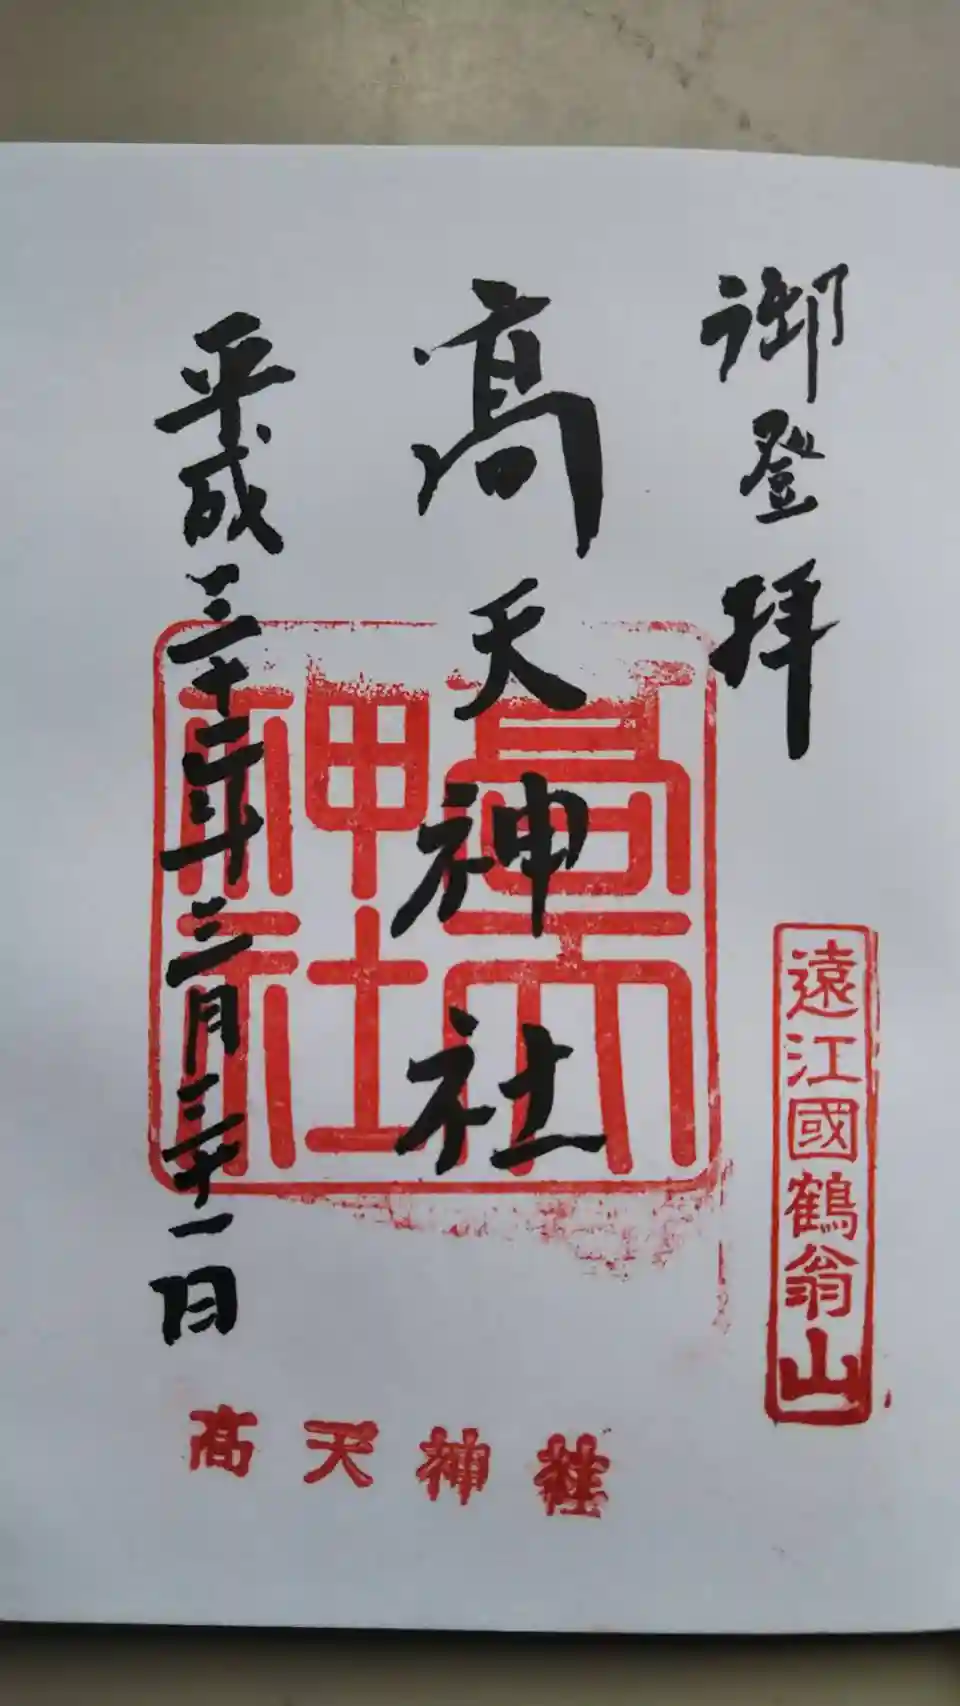 御登拝
高天神社
平成三十一年三月三十一日
高天
神社
遠江國鶴翁山
高天神社